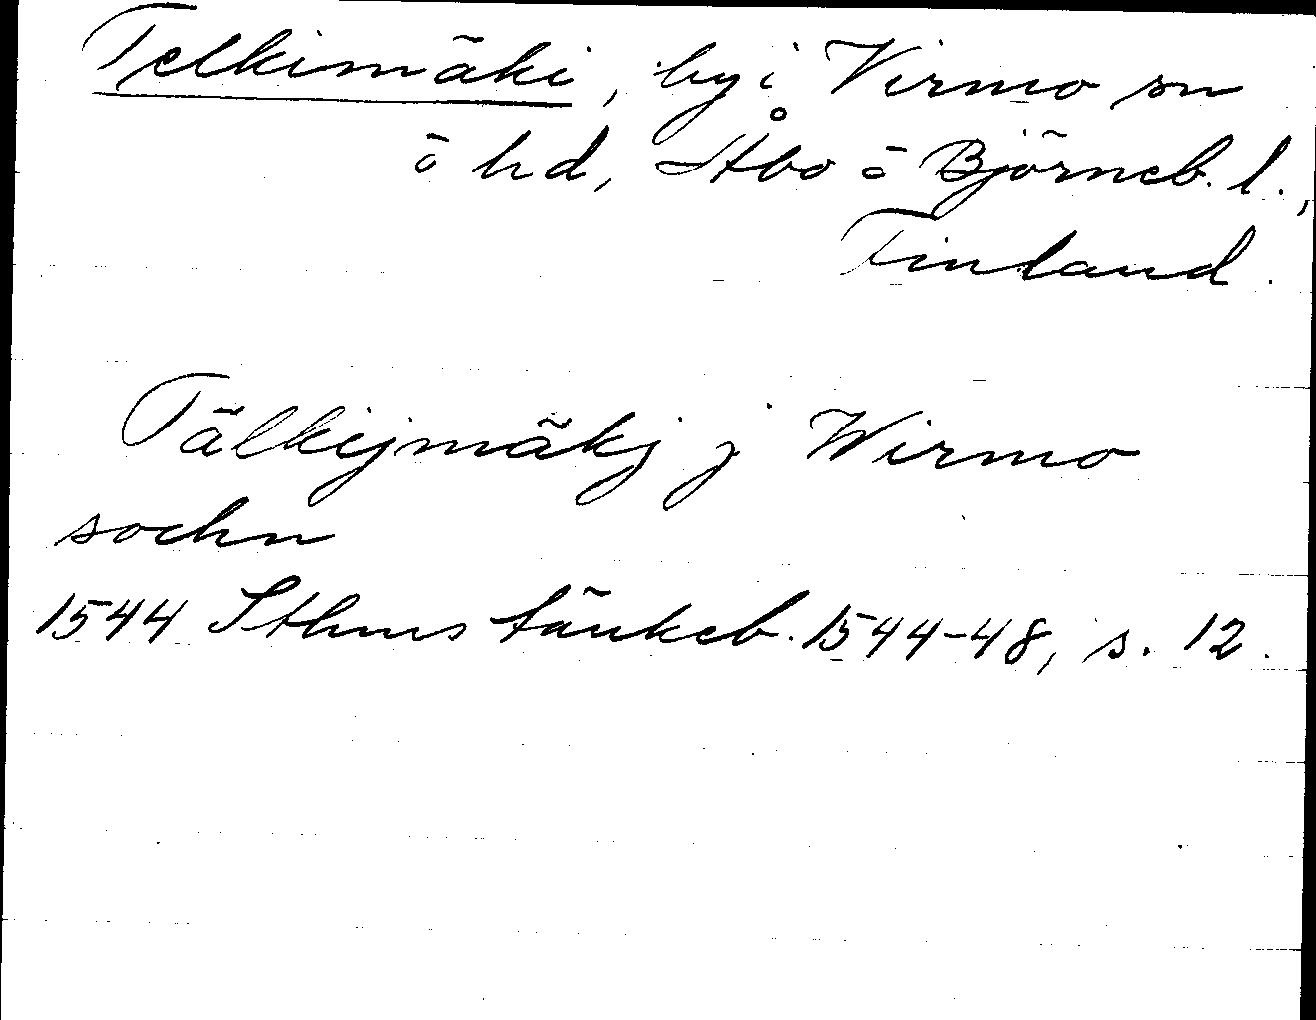 Telkimäki, by i Virmo sn
o hd, Åbo o Björneb. l.,
Finland.
Tälkijmäkj j Wirmo
sochn
1544 Sthms tänkeb. 1544-48, s. 12.